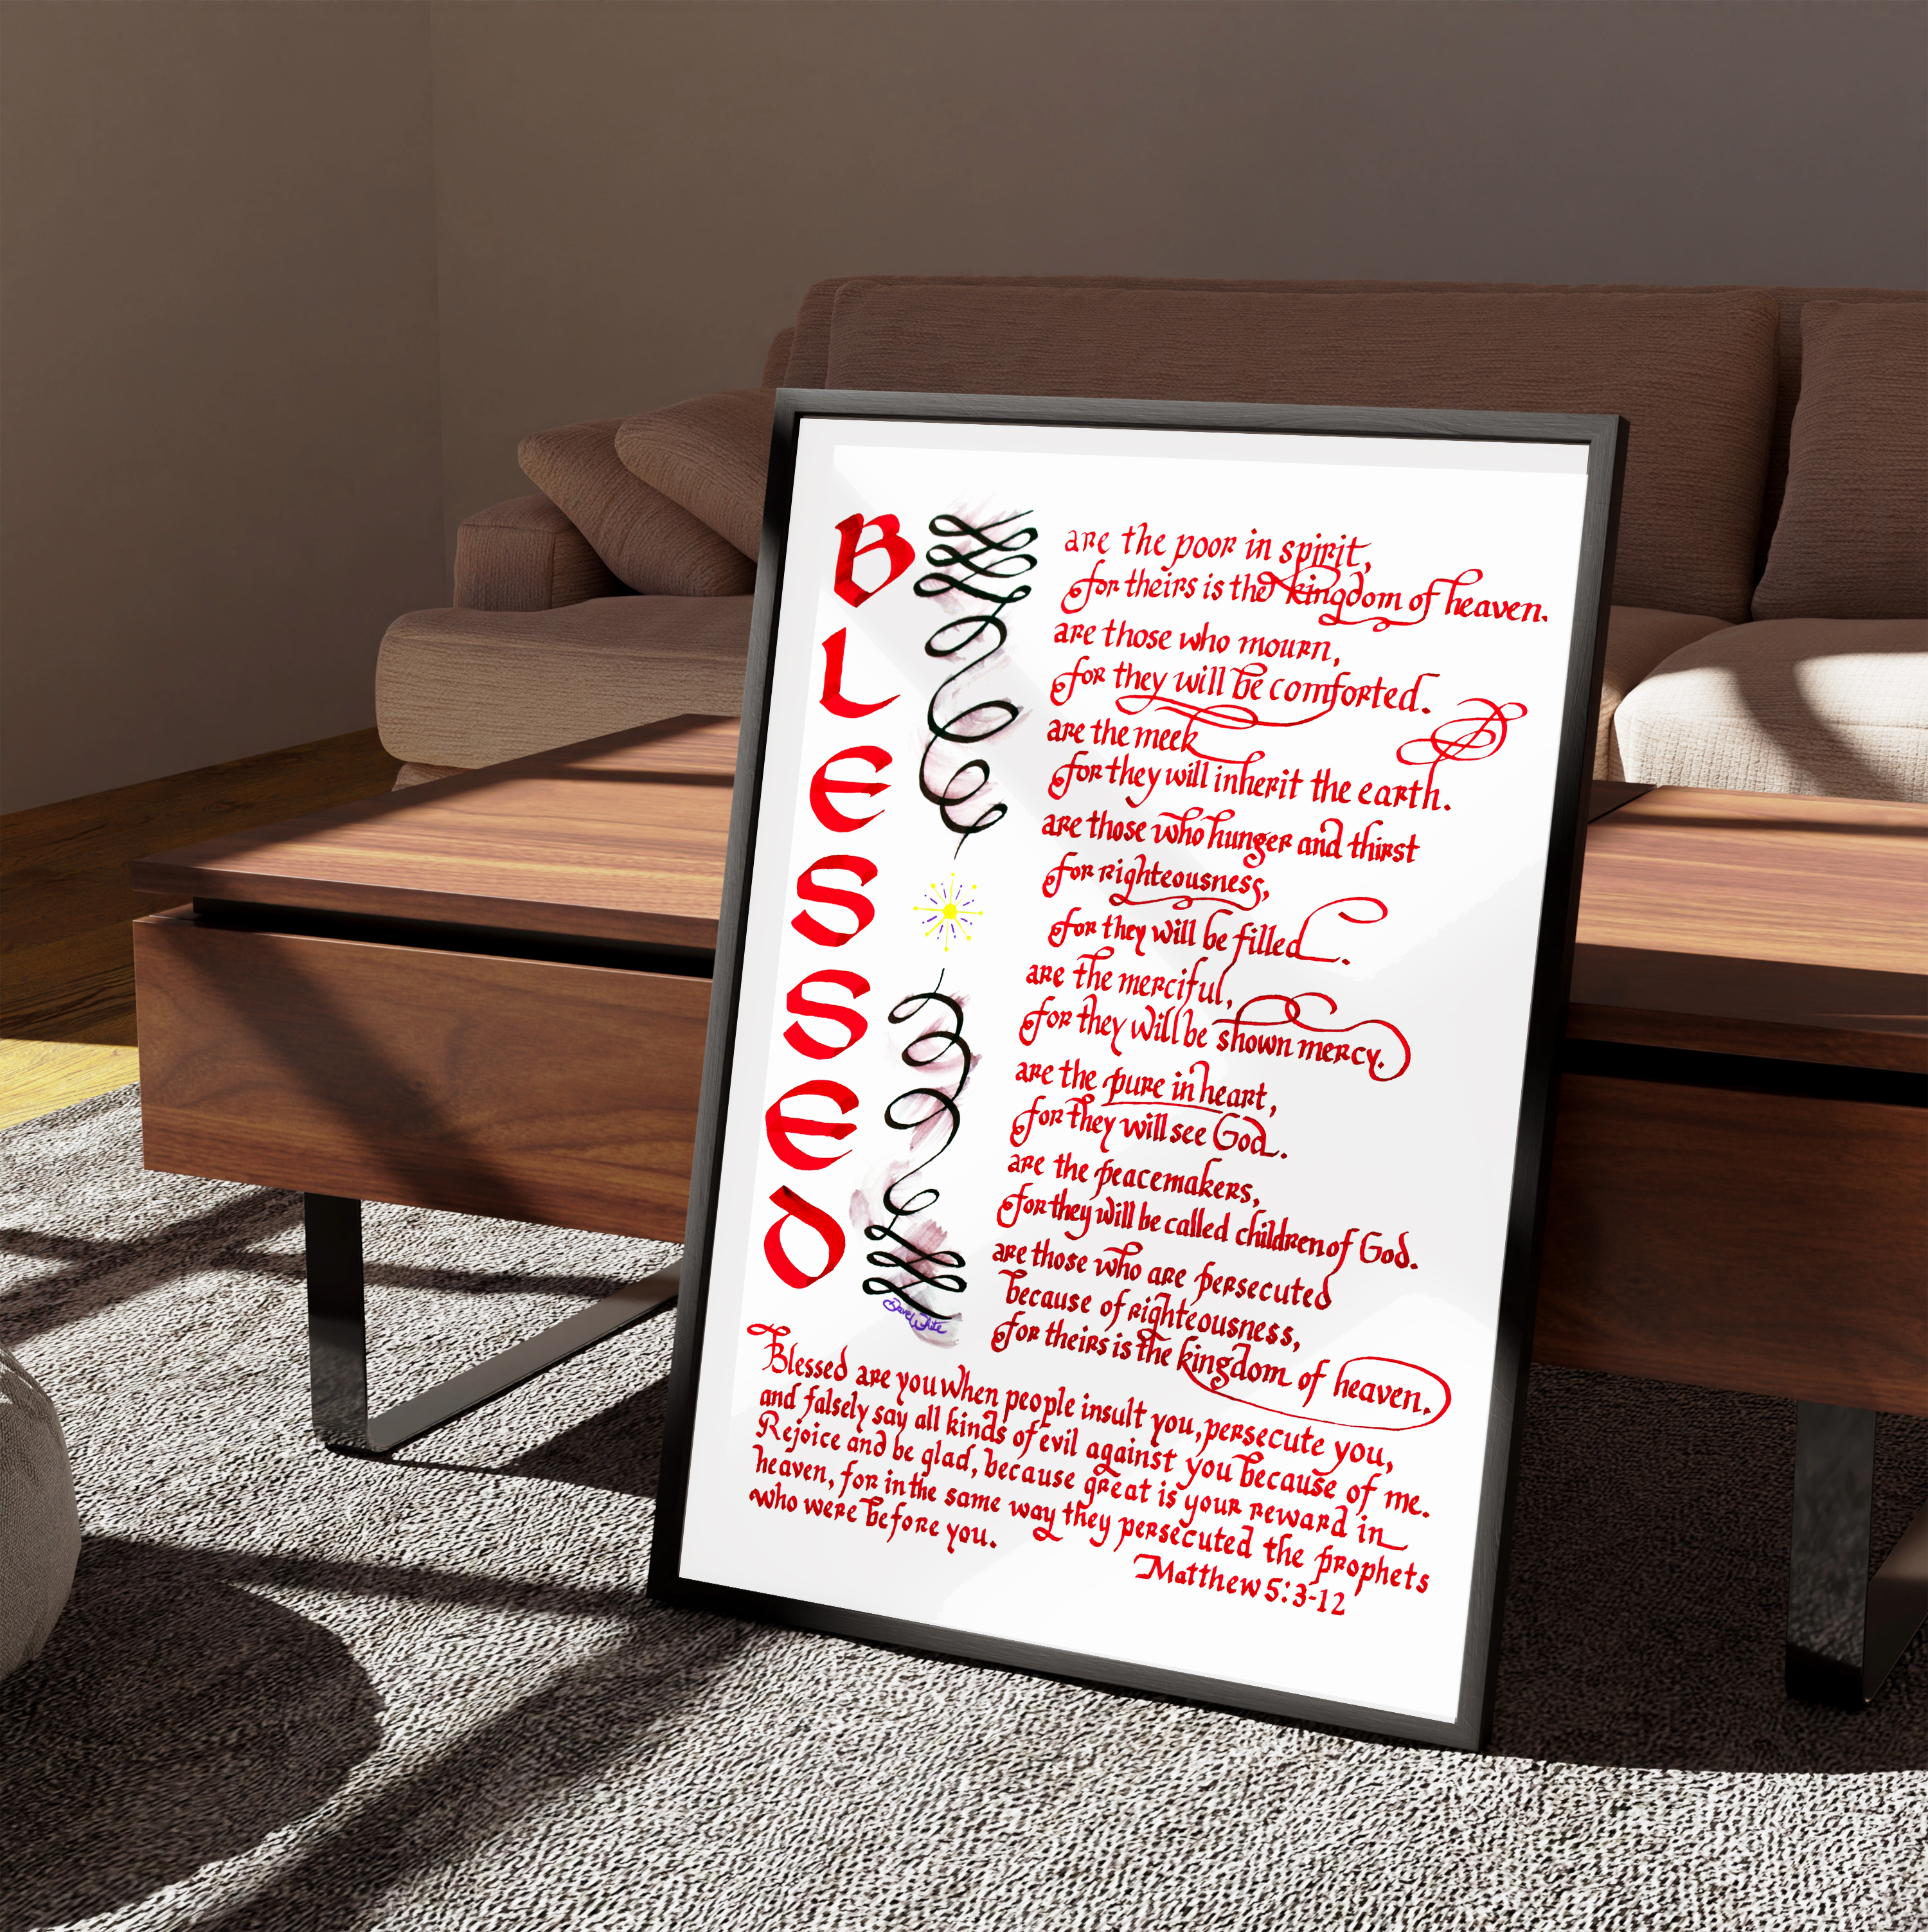 BLESSED
are the poor in spirit,
for theirs is the kingdom of heaven.
are those who mourn,
for they will be comforted.
are the meek
for they will inherit the earth.
are those who hunger and thirst
for righteousness,
for they will be filled.
are the merciful,
for they will be shown mercy.
are the pure in heart,
for they will see God.
are the peacemakers,
for they will be called children of God.
are those who are persecuted
because of righteousness,
for theirs is the kingdom of heaven.
Dave White
Blessed are you when people insult you, persecute you,
and falsely say all kinds of evil against you because of me.
Rejoice and be glad, because great is your reward in
heaven, for in the same way they persecuted the prophets
who were before you.
Matthew 5:3-12